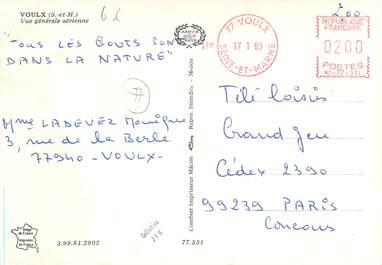 VOULX (S.-et-M.)
Vue générale aérienne
6L
"TOUS LES GOUTS SONT
DANS LA NATURE"
77
Mme LADEVEZ Monique
3, rue de la Berle
77940 - VOULX -
3.99.81.2902
77.531
Combier Imprimeur Mâcon
Repro. Interdite - 36-000
77 VOULX
17 1 89
SEINE-ET-MARNE
2,00
REPUBLIQUE
FRANCAISE
0200
POSTES
Télé loisirs
Grand Jeu
Cédex 2390
99239 PARIS
Concours
Image de France
Imprimée en France